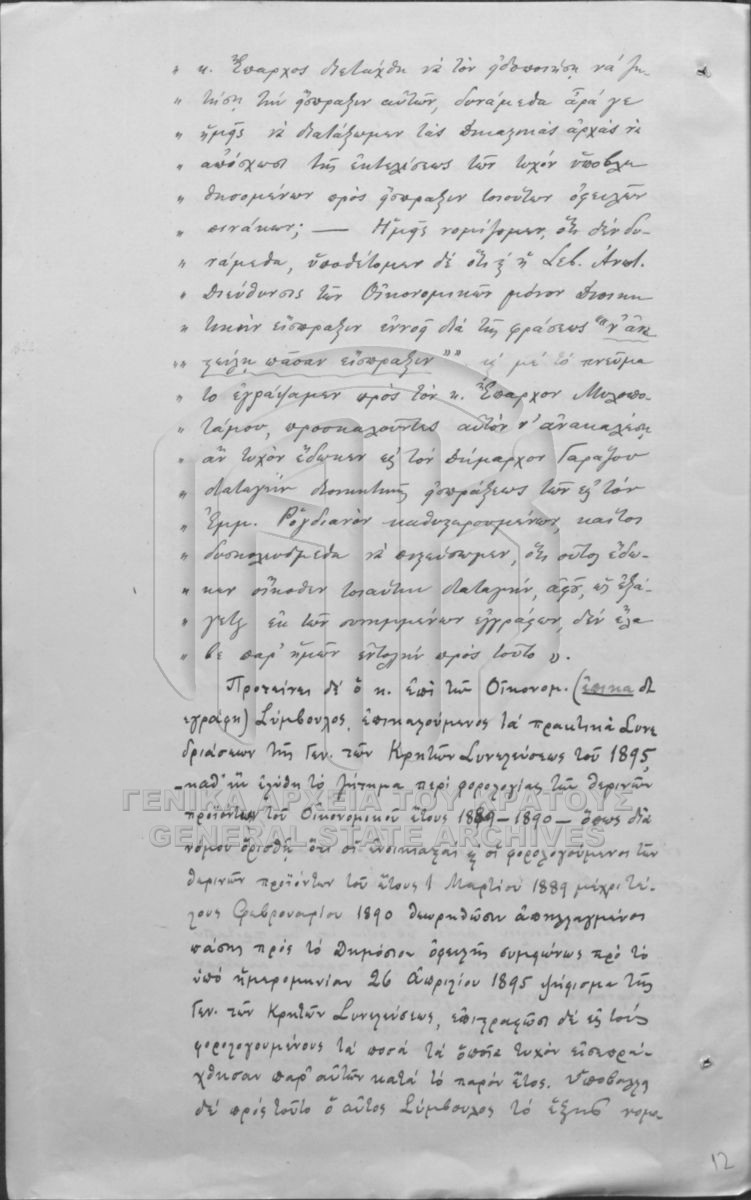 " κ. Ἔπαρχος διετάχθη νὰ τὸν ὑποποιήσῃ νὰ ζη-
" τήσῃ τὴν εἴσπραξιν αὐτῶν, δυνάμεθα ἆρά γε
" ἡμεῖς νὰ διατάξωμεν τὰς Δικαστικὰς ἀρχὰς νὰ
" ἀπόσχωσι τῆς ἐκτελέσεως τῶν τυχὸν ὑποβλη
" θησομένων πρὸς εἴσπραξιν τοιούτων ὀφειλῶν
" πινάκων; — Ἡμεῖς νομίζομεν, ὅτι δὲν δυ-
" νάμεθα, ὑποθέτομεν δὲ ὅτι ἡ Σεβ. Ἀνωτ.
" Διεύθυνσις τῶν Οἰκονομικῶν μόνον Διοικη
" τικὴν εἴσπραξιν ἐννοεῖ διὰ τῆς φράσεως ""ν' ἀνα
"" στείλῃ πᾶσαν εἴσπραξιν"" καὶ μὲ τὸ πνεῦμα
" το ἐγράψαμεν πρὸς τὸν κ. Ἔπαρχον Μυλοπο-
" τάμου, προσκαλοῦντες αὐτὸν ν' ἀνακαλέσῃ
" ἂν τυχὸν ἔδωκεν εἰς τὸν Δήμαρχον Γαράζου
" διαταγὴν διοικητικῆς εἰσπράξεως τῶν εἰς τὸν
" Ἐμμ. Ρογδιανὸν καθυστερουμένων, καίτοι
" δυσκολευόμεθα νὰ πιστεύσωμεν, ὅτι οὗτος ἔδω-
" κεν οἴκοθεν τοιαύτην διαταγήν, ἀφοῦ, ὡς ἐξά-
" γεται ἐκ τῶν συνημμένων ἐγγράφων, δὲν ἔλα
" βε παρ' ἡμῶν ἐντολὴν πρὸς τοῦτο ».
Προτείνει δὲ ὁ κ. ἐπὶ τῶν Οἰκονομ. (ἔπειτα δι
εγράφη) Σύμβουλος, ἐπικαλούμενος τὰ πρακτικὰ Συνε
δριάσεων τῆς Γεν. τῶν Κρητῶν Συνελεύσεως τοῦ 1895,
καθ' ἣν ἐλύθη τὸ ζήτημα περὶ φορολογίας τῶν θερινῶν
προϊόντων τοῦ Οἰκονομικοῦ ἔτους 1889 – 1890 – ὅπως διὰ
νόμου ὁρισθῇ ὅτι οἱ ἐνοικιασταὶ καὶ οἱ φορολογούμενοι τῶν
θερινῶν προϊόντων τοῦ ἔτους 1 Μαρτίου 1889 μέχρι τέ-
λους Φεβρουαρίου 1890 θεωρηθῶσιν ἀπηλλαγμένοι
πάσης πρὸς τὸ Δημόσιον ὀφειλῆς συμφώνως πρὸ τὸ
ὑπὸ ἡμερομηνίαν 26 Ἀπριλίου 1895 ψήφισμα τῆς
Γεν. τῶν Κρητῶν Συνελεύσεως, ἐπιστραφῶσι δὲ εἰς τοὺς
φορολογουμένους τὰ ποσὰ τὰ ὁποῖα τυχὸν εἰσεπρά-
χθησαν παρ' αὐτῶν κατὰ τὸ παρὸν ἔτος. Ὑποβάλλει
δὲ πρὸς τοῦτο ὁ αὐτὸς Σύμβουλος τὸ ἑξῆς νομο-
ΓΕΝΙΚΑ ΑΡΧΕΙΑ ΤΟΥ ΚΡΑΤΟΥΣ
GENERAL STATE ARCHIVES
12